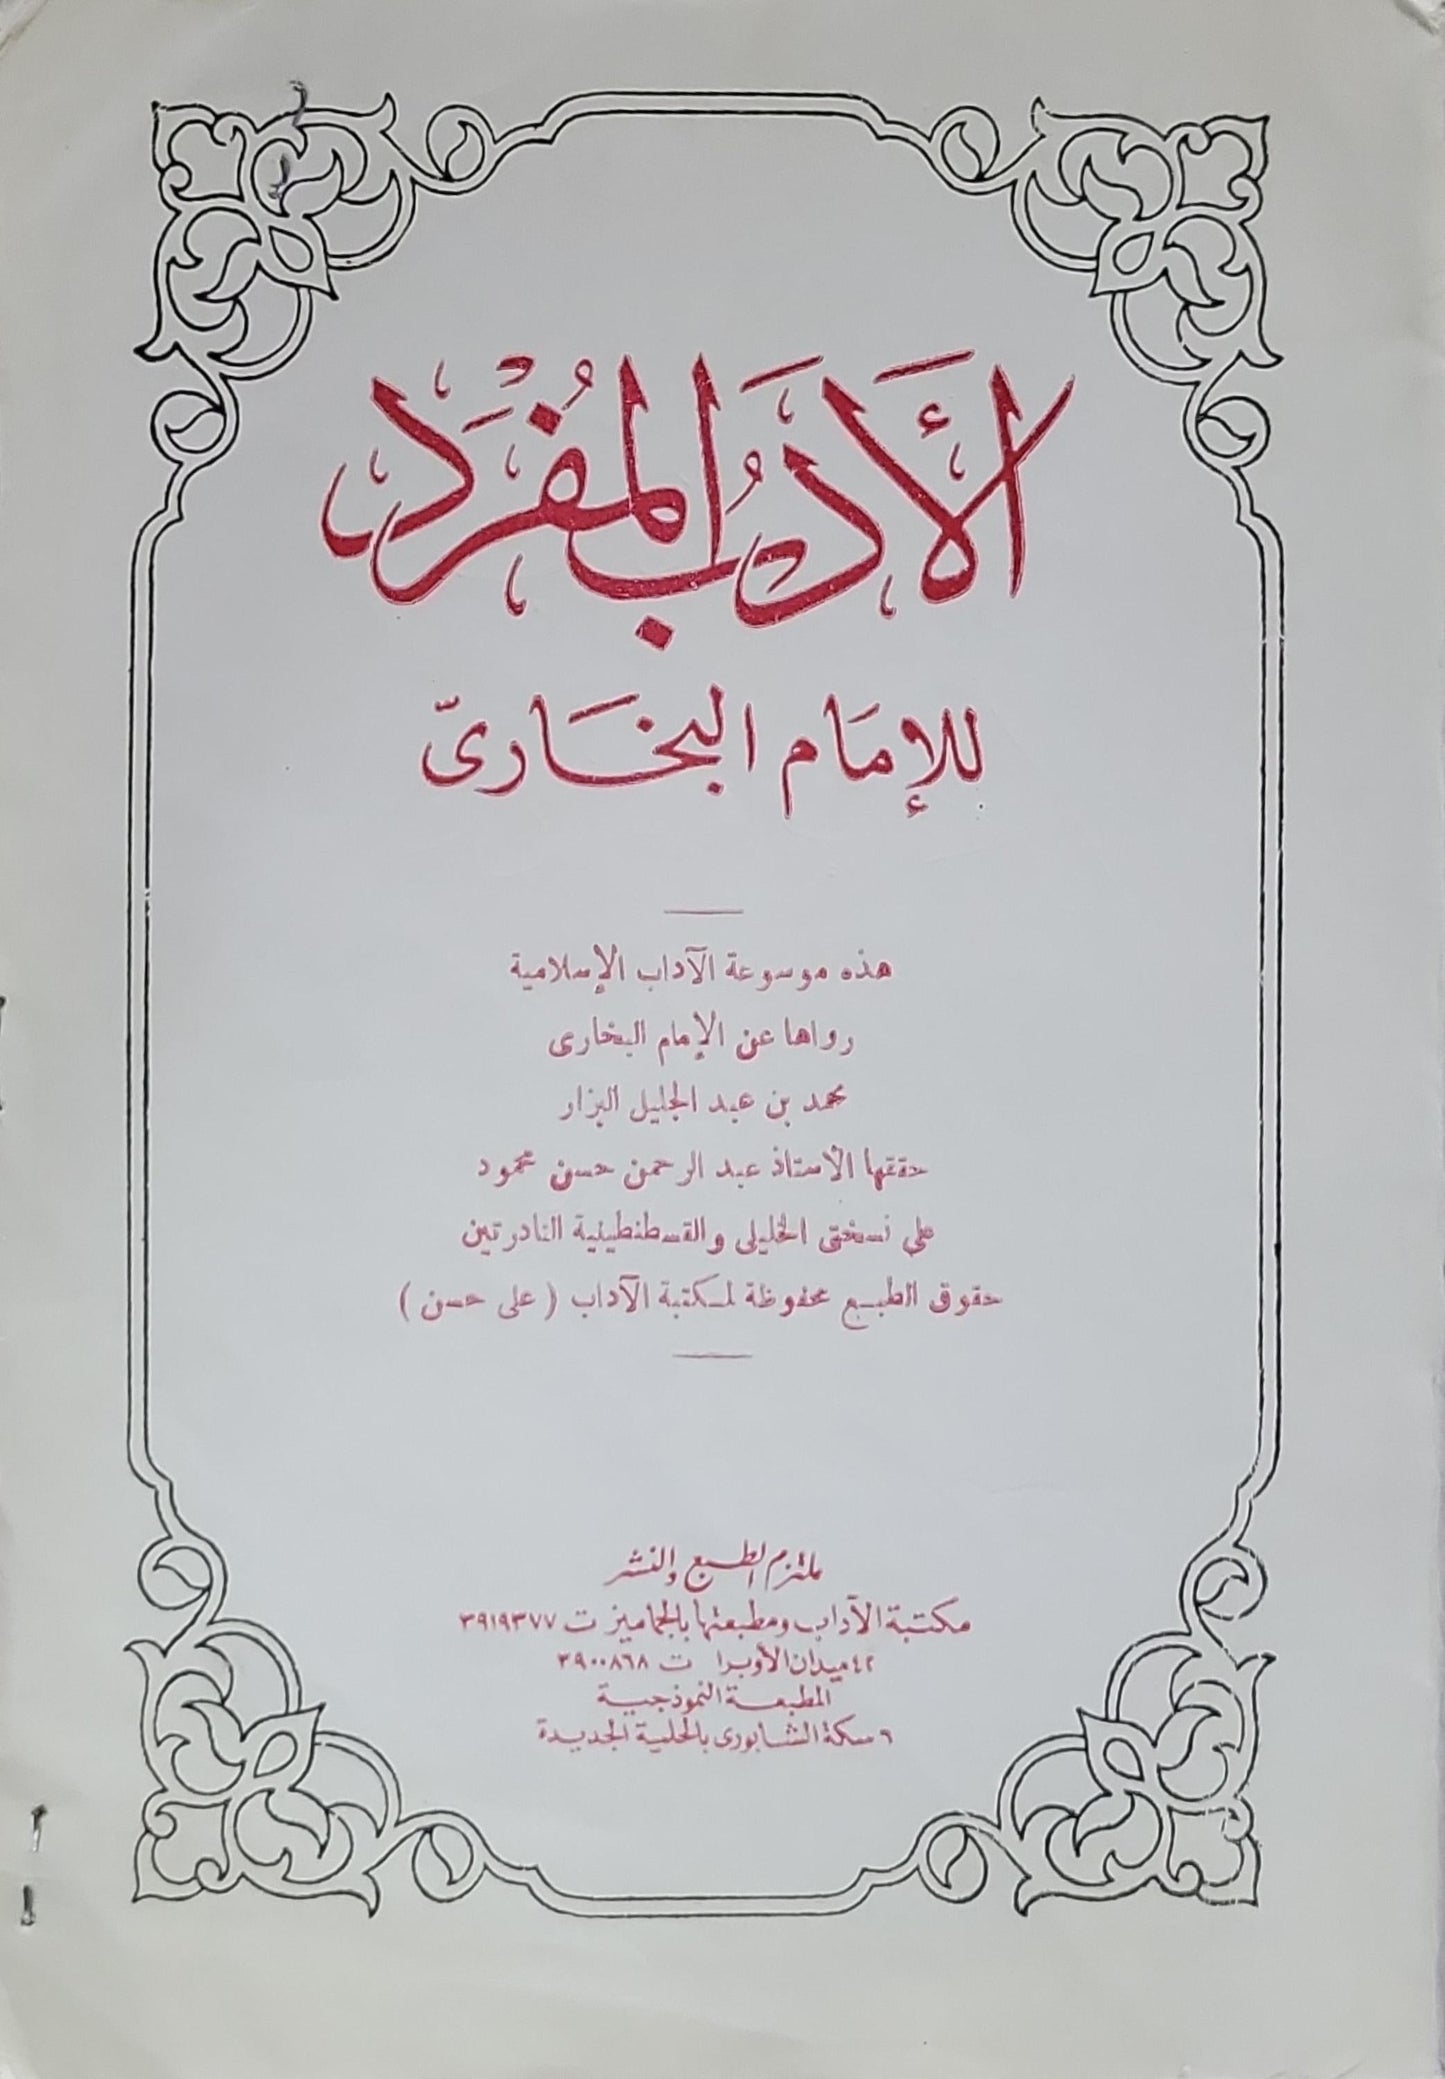 الأَدَبُ المُفرَد
للإمَام البخَاريّ
هذه موسوعة الآداب الإسلامية
رواها عن الإمام البخارى
محمد بن عبد الجليل البزار
حققها الأستاذ عبد الرحمن حسن محمود
على نسختى الخليلى والقسطنطينية النادرتين
حقوق الطبع محفوظة لمكتبة الآداب ( على حسن )
ملتزم الطبع والنشر
مكتبة الآداب ومطبعتها بالجماميز ت ٣٩١٩٣٧٧
٤٢ ميدان الأوبرا ت ٣٩٠٠٨٦٨
المطبعة النموذجية
٦ سكة الشابورى بالحلمية الجديدة